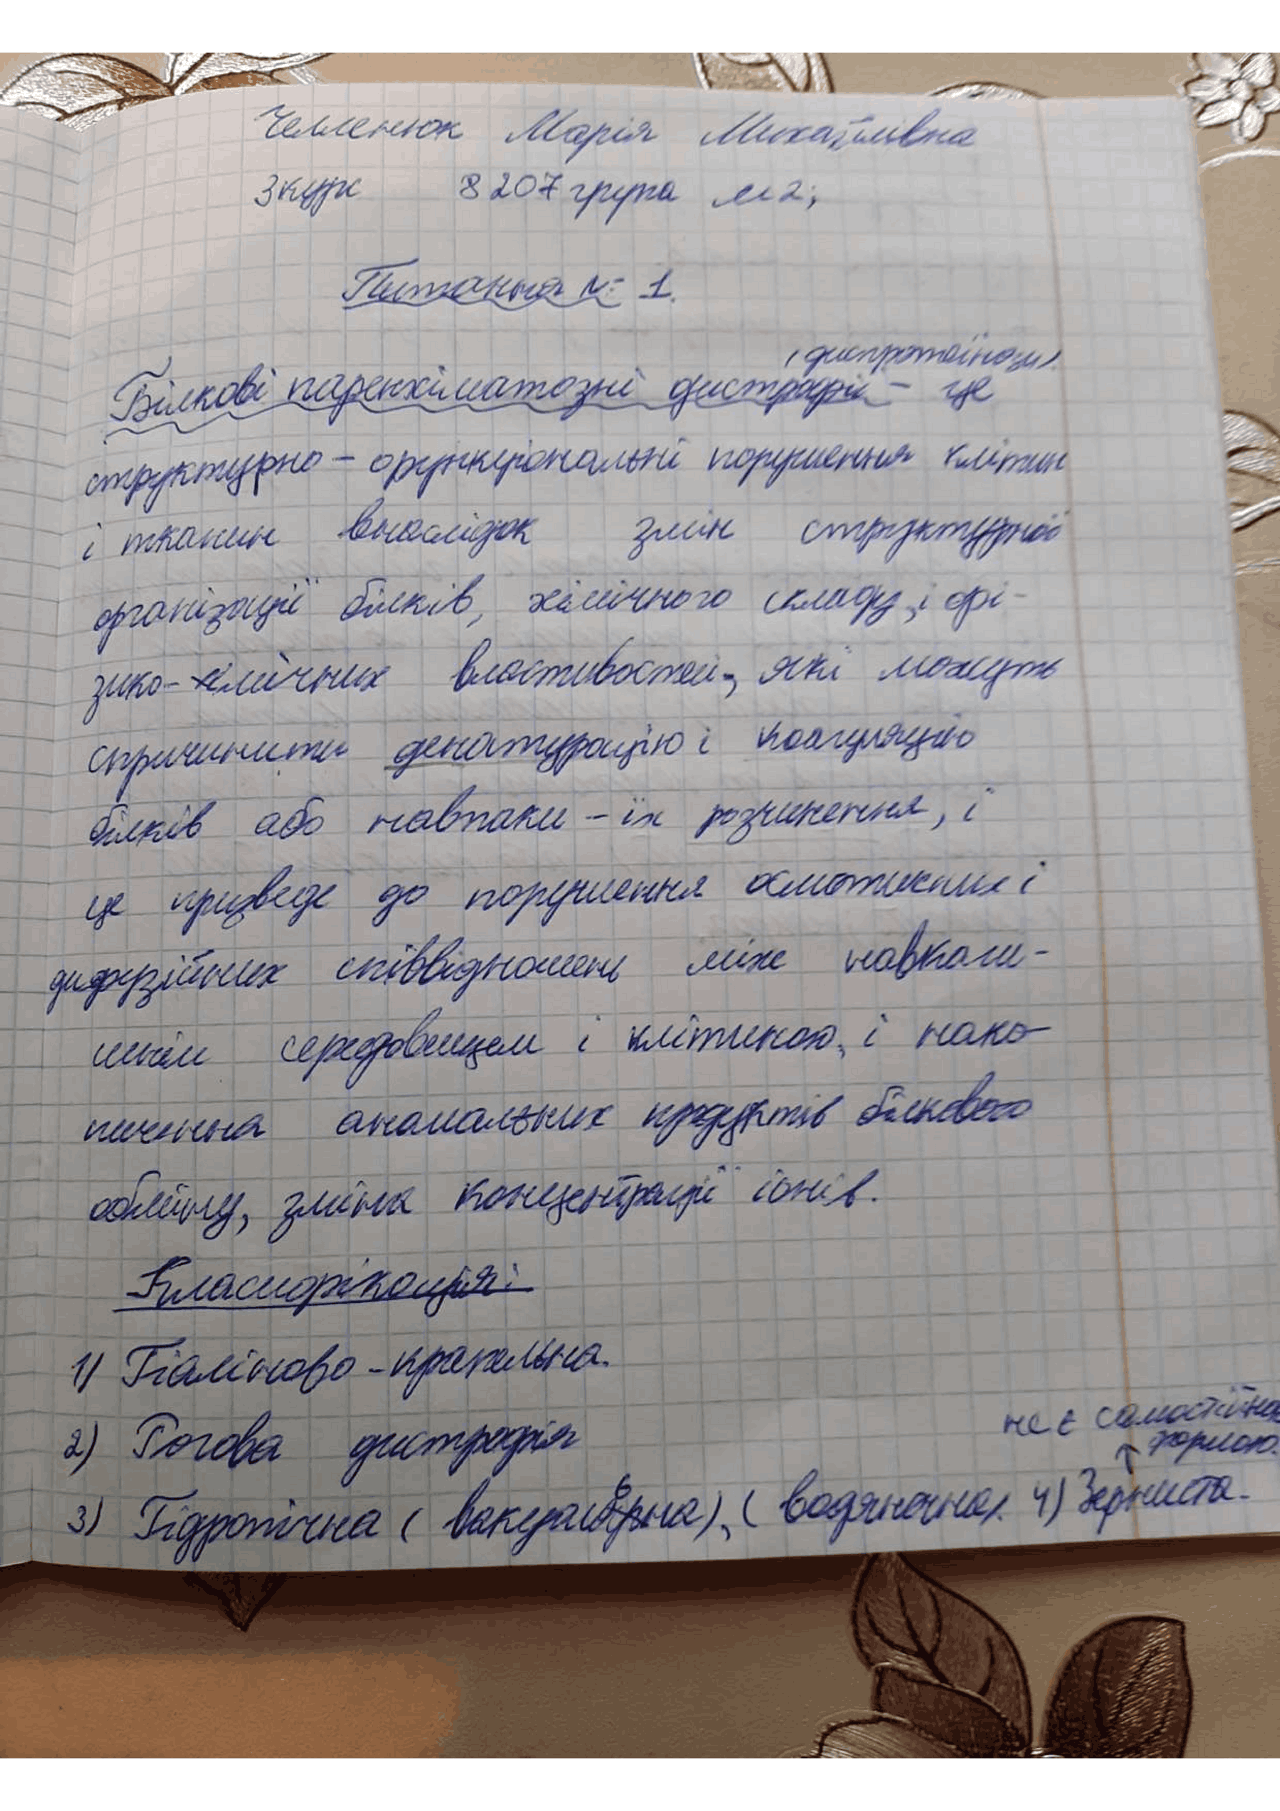 Челенюк Марія Михайлівна
3 курс 8207 група м2;
Питання № 1.
(диспротеїнози).
Білкові паренхіматозні дистрофії – це
структурно – функціональні порушення клітин
і тканин внаслідок змін структурної
організації білків, хімічного складу, і фі-
зико-хімічних властивостей, які можуть
спричинити денатурацію і коагуляцію
білків або навпаки – їх розчинення, і
це призведе до порушення осмотичних і
дифузійних співвідношень між навколи-
шнім середовищем і клітиною, і нако-
пичення аномальних продуктів білкового
обміну, зміна концентрації іонів.
Класифікація:
1) Гіаліново-крапельна.
2) Рогова дистрофія
не є самостійною
формою.
3) Гідропічна (вакуольна), (водяночна). 4) Зерниста.